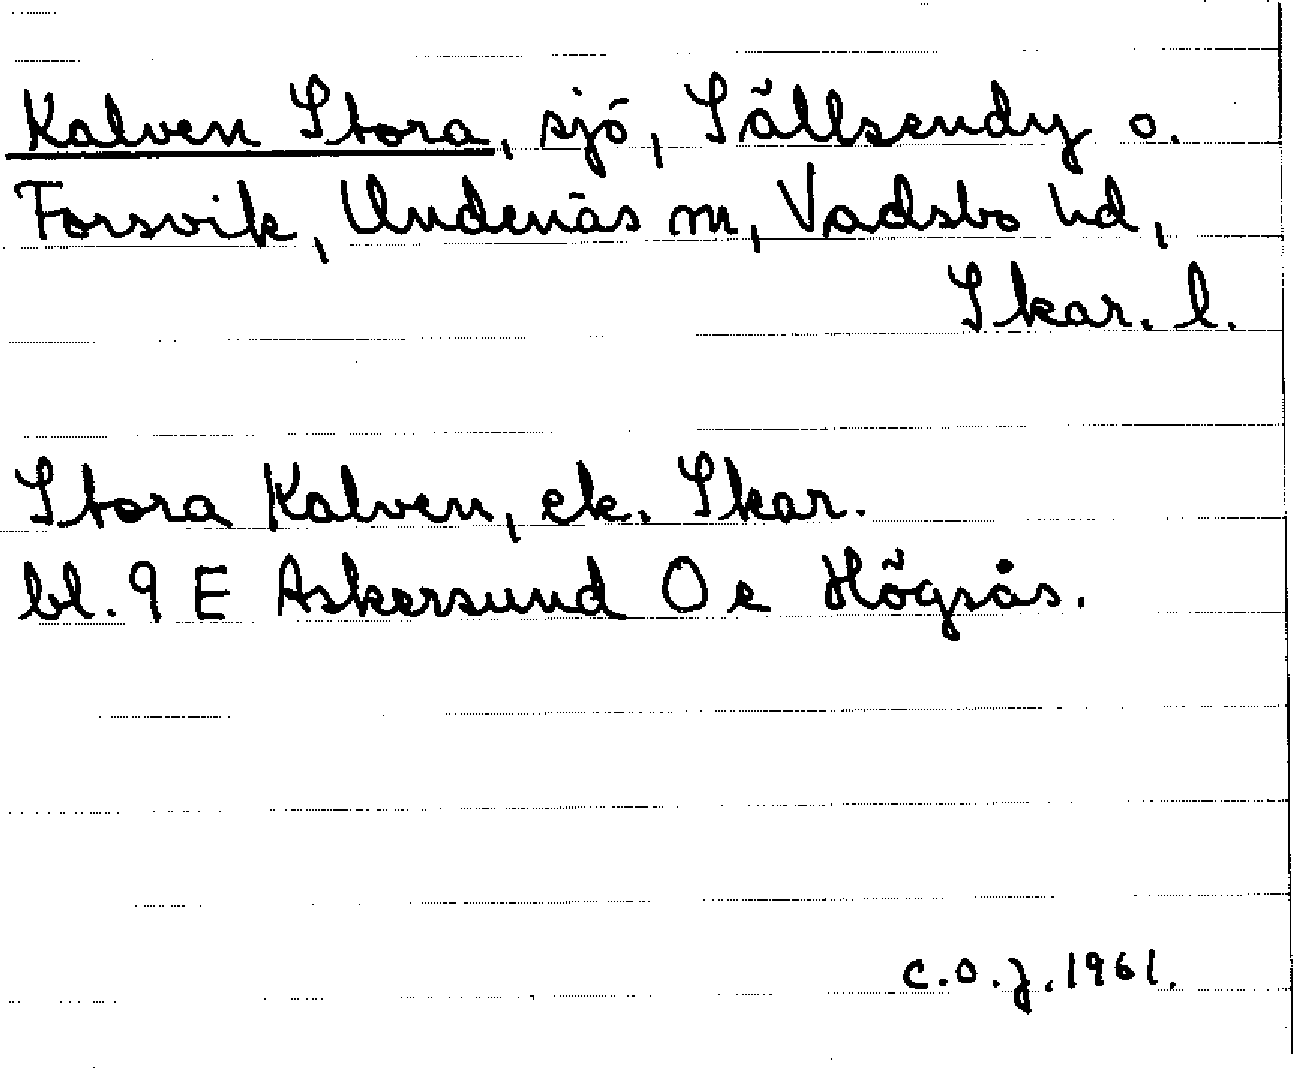 Kalven Stora, sjö, Sällsendy o.
Forsvik, Undenäs m, Vadsbo hd,
Skar. l.
Stora Kalven, ek. Skar.
bl. 9 E Askersund O e Högsås.
C.O.J. 1961.